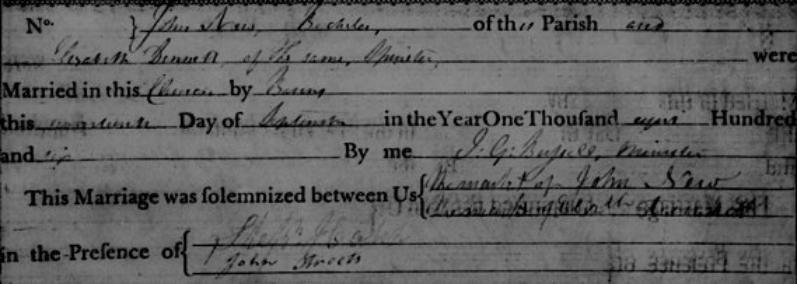 No. } John New, Bachelor, of this Parish and
Elizabeth Bennett, of the same, Spinster, were
Married in this Church by Banns
this Day of September in the Year One Thouſand eight Hundred
and six By me J. G. Minister
This Marriage was ſolemnized between Us { The mark + of John New
The mark of Bennett
in the Preſence of {
John Streets